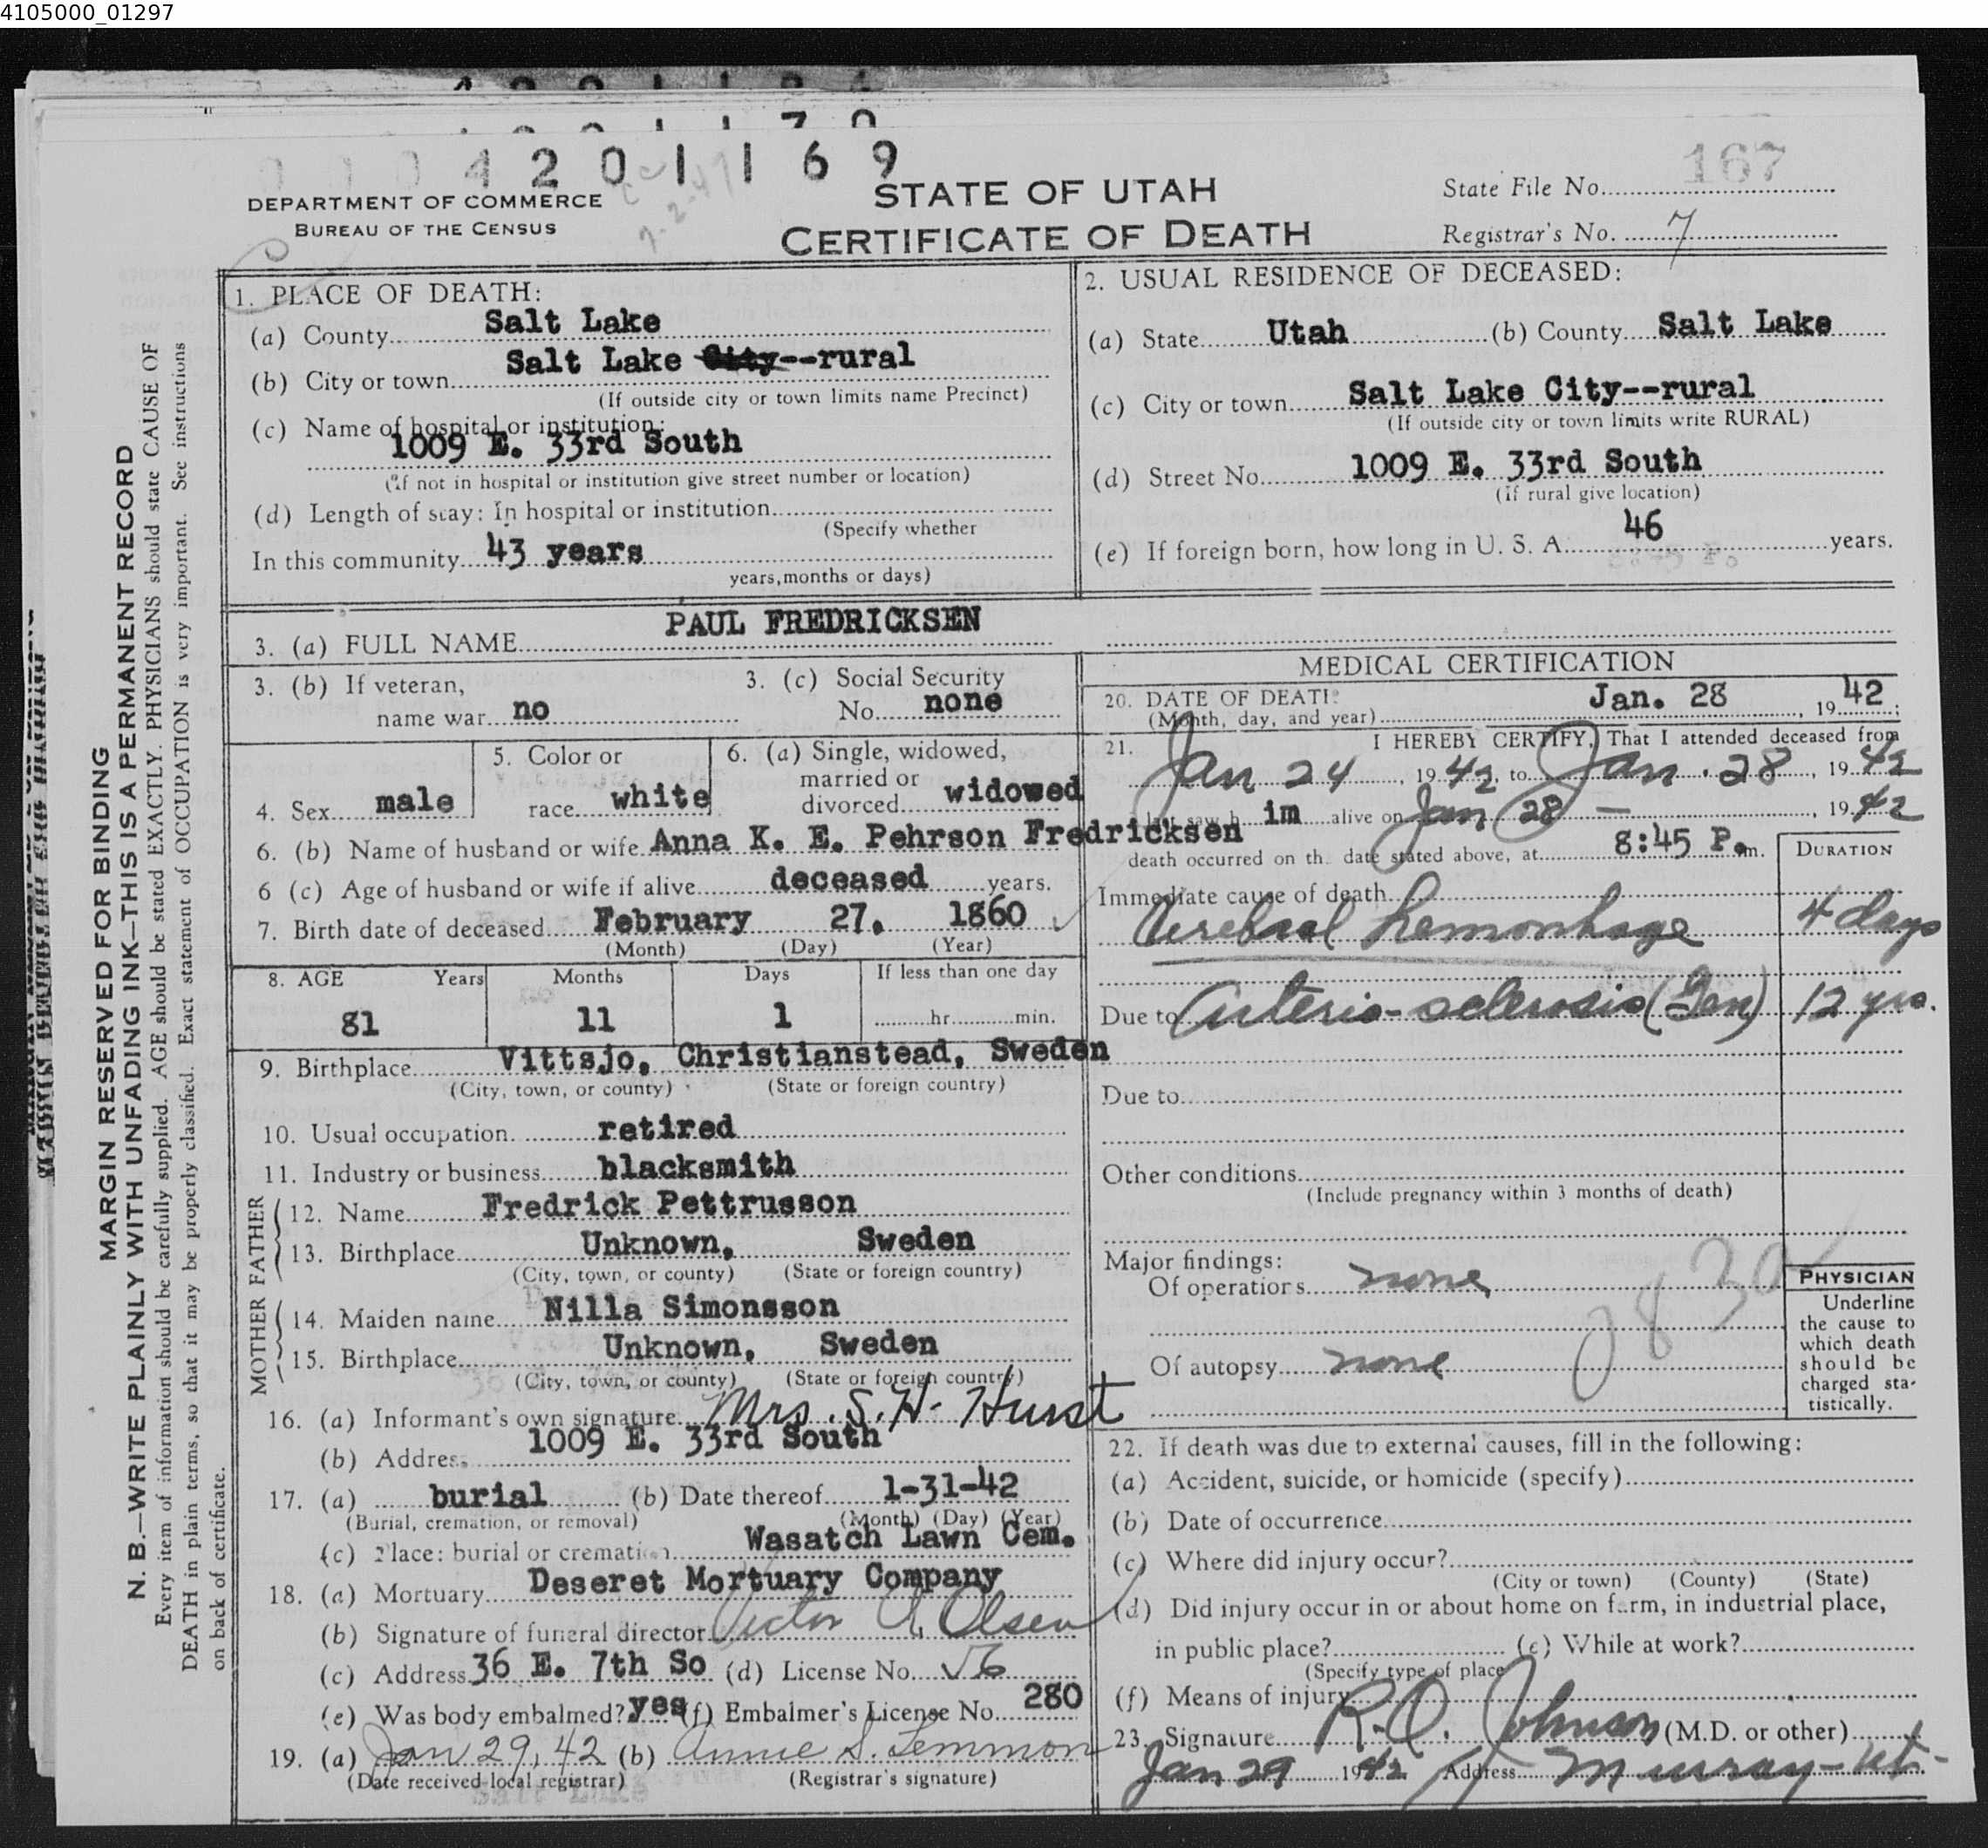 4105000_01297
4201169
167
DEPARTMENT OF COMMERCE
BUREAU OF THE CENSUS
STATE OF UTAH
CERTIFICATE OF DEATH
State File No.
Registrar's No. 7
MARGIN RESERVED FOR BINDING
N. B.—WRITE PLAINLY WITH UNFADING INK—THIS IS A PERMANENT RECORD
Every item of information should be carefully supplied. AGE should be stated EXACTLY. PHYSICIANS should state CAUSE OF
DEATH in plain terms, so that it may be properly classified. Exact statement of OCCUPATION is very important. See instructions
on back of certificate.
1. PLACE OF DEATH:
(a) County Salt Lake
(b) City or town Salt Lake City--rural
(If outside city or town limits name Precinct)
(c) Name of hospital or institution:
1009 E. 33rd South
(If not in hospital or institution give street number or location)
(d) Length of stay: In hospital or institution
(Specify whether
In this community 43 years
years, months or days)
2. USUAL RESIDENCE OF DECEASED:
(a) State Utah (b) County Salt Lake
(c) City or town Salt Lake City--rural
(If outside city or town limits write RURAL)
(d) Street No. 1009 E. 33rd South
(If rural give location)
(e) If foreign born, how long in U. S. A. 46 years.
3. (a) FULL NAME PAUL FREDRICKSEN
3. (b) If veteran,
name war no
3. (c) Social Security
No. none
4. Sex male
5. Color or
race white
6. (a) Single, widowed,
married or
divorced widowed
6. (b) Name of husband or wife Anna K. E. Pehrson Fredricksen
6 (c) Age of husband or wife if alive deceased years.
7. Birth date of deceased February 27, 1860
(Month) (Day) (Year)
8. AGE Years Months Days If less than one day
81 11 1 hr. min.
9. Birthplace Vittsjo, Christianstead, Sweden
(City, town, or county) (State or foreign country)
10. Usual occupation retired
11. Industry or business blacksmith
FATHER
12. Name Fredrick Pettrusson
13. Birthplace Unknown, Sweden
(City, town, or county) (State or foreign country)
MOTHER
14. Maiden name Nilla Simonsson
15. Birthplace Unknown, Sweden
(City, town, or county) (State or foreign country)
16. (a) Informant's own signature Mrs. S. H. Hurst
(b) Address 1009 E. 33rd South
17. (a) burial (b) Date thereof 1-31-42
(Burial, cremation, or removal) (Month) (Day) (Year)
(c) Place: burial or cremation Wasatch Lawn Cem.
18. (a) Mortuary Deseret Mortuary Company
(b) Signature of funeral director Victor A. Olsen
(c) Address 36 E. 7th So (d) License No. 56
(e) Was body embalmed? yes (f) Embalmer's License No. 280
19. (a) Jan 29, 42 (b) Annie S. Lemmon
(Date received local registrar) (Registrar's signature)
MEDICAL CERTIFICATION
20. DATE OF DEATH
(Month, day, and year) Jan. 28, 1942;
21. I HEREBY CERTIFY, That I attended deceased from
Jan 24, 1942, to Jan. 28, 1942
last saw him alive on Jan 28 —, 1942
death occurred on the date stated above, at 8:45 P.m.
DURATION
Immediate cause of death
Cerebral hemorrhage 4 days
Due to Arterio-sclerosis (Gen) 12 yrs.
Due to
Other conditions
(Include pregnancy within 3 months of death)
Major findings:
Of operations none
Of autopsy none
PHYSICIAN
Underline
the cause to
which death
should be
charged sta-
tistically.
22. If death was due to external causes, fill in the following:
(a) Accident, suicide, or homicide (specify)
(b) Date of occurrence
(c) Where did injury occur?
(City or town) (County) (State)
(d) Did injury occur in or about home on farm, in industrial place,
in public place? (e) While at work?
(Specify type of place)
(f) Means of injury
23. Signature R. O. Johnson (M.D. or other)
Jan 29 1942 Address Murray-Ut.